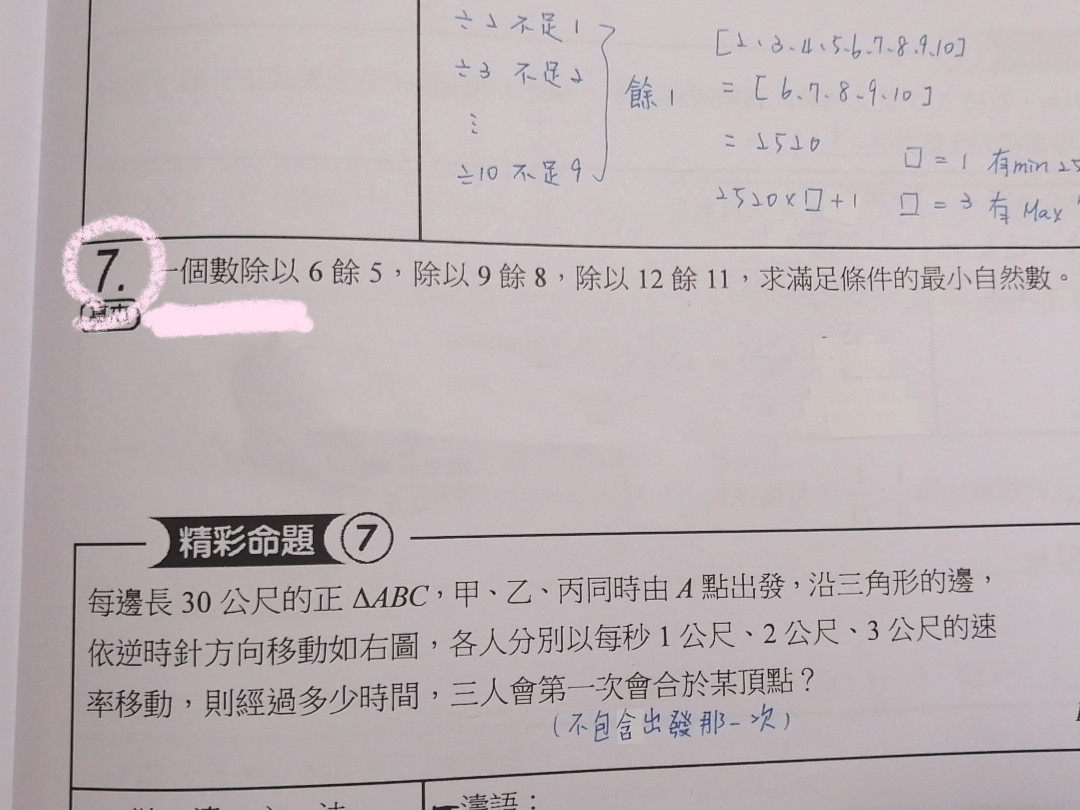 ÷2 不足1
÷3 不足2
⋮
÷10 不足9
餘1
[2、3、4、5、6、7、8、9、10]
= [6、7、8、9、10]
= 2520
2520×□+1
□ = 1 有min 25
□ = 3 有 Max
7. 一個數除以 6 餘 5，除以 9 餘 8，除以 12 餘 11，求滿足條件的最小自然數。
基本
精彩命題 7
每邊長 30 公尺的正 ΔABC，甲、乙、丙同時由 A 點出發，沿三角形的邊，
依逆時針方向移動如右圖，各人分別以每秒 1 公尺、2 公尺、3 公尺的速
率移動，則經過多少時間，三人會第一次會合於某頂點？
(不包含出發那一次)
濤語：